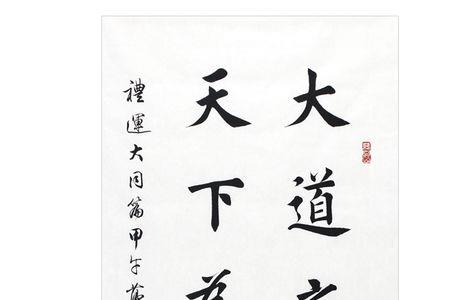 大道
天下
禮運大同篇甲午